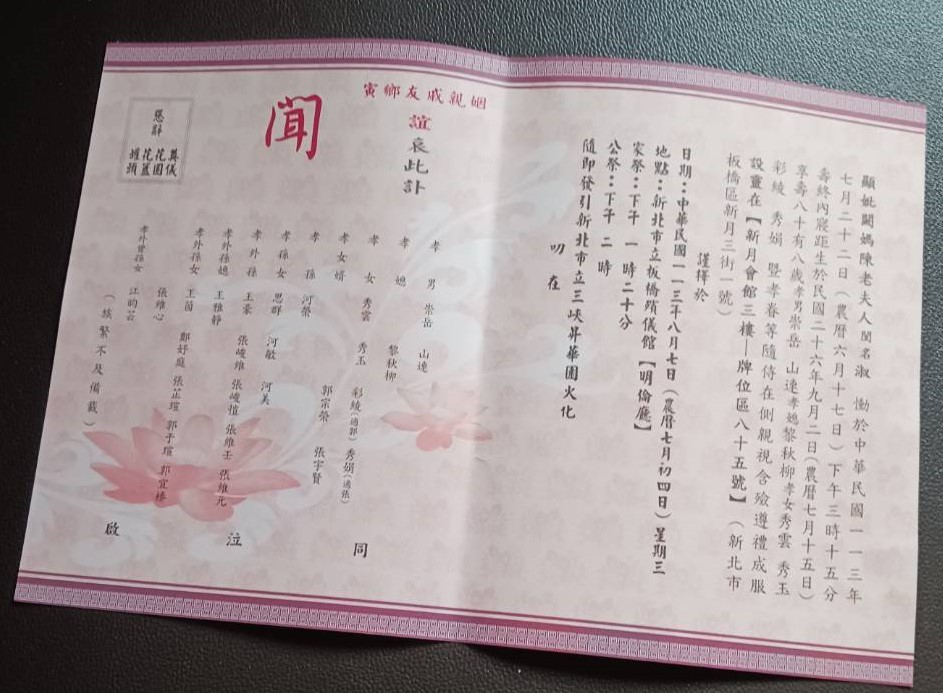 顯妣闕媽陳老夫人閨名淑 慟於中華民國一一三年
七月二十二日（農曆六月十七日）下午三時十五分
壽終內寢距生於民國二十六年九月二日（農曆七月十五日）
享壽八十有八歲孝男崇岳 山達孝媳黎秋柳孝女秀雲 秀玉
彩綾 秀娟 暨孝眷等隨侍在側親視含殮遵禮成服
設靈在【新月會館三樓—牌位區八十五號】（新北市
板橋區新月三街一號）
謹擇於
日期：中華民國一一三年八月七日（農曆七月初四日）星期三
地點：新北市立板橋殯儀館【明倫廳】
家祭：下午 一 時二十分
公祭：下午 二 時
隨即發引新北市立三峽昇華園火化
叨 在
姻親戚友鄉寅
誼哀此訃
聞
孝 男 崇岳 山達
孝 媳 黎秋柳
孝 女 秀雲 秀玉 彩綾（適郭） 秀娟（適張）
孝女婿 郭宗榮 張宇賢
孝 孫 河榮
孝孫女 思群 河敏 河美
孝外孫 王豪 張峻維 張峻愷 張維壬 張維元
孝外孫媳 王雅靜
孝外孫女 王茵 鄭妤庭 張芷瑄 郭于瑄 郭宜榛
張維心
孝外曾孫女 江昀芸
（族繁不及備載）
同
泣
啟
懇辭
奠儀
花圈
花籃
罐頭